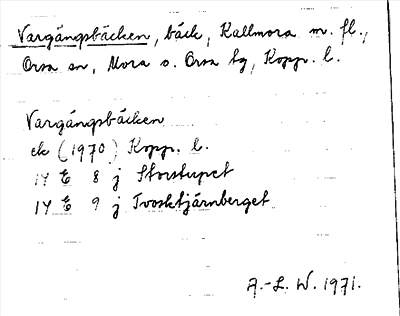 Vargångsbäcken, bäck, Kallmora m. fl.,
Orsa sn, Mora o. Orsa tg, Kopp. l.
Vargångsbäcken
ek (1970) Kopp. l.
14 E 8 j Storstupet
14 E 9 j Tvosktjärnberget
A.-L. W. 1971.